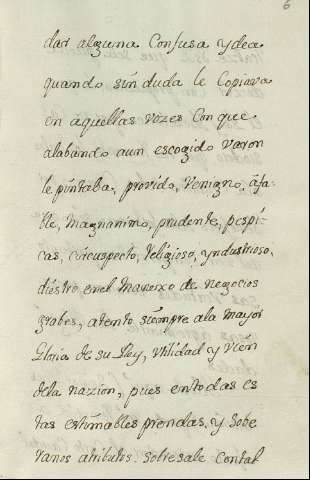 6
dar alguna Confusa ydea
quando sin duda le Copiava
en aquellas vozes Con que
alabando aun escogido varon
le pintaba, provido, Venigno, afa
ble, Magnanimo, prudente, pespi
cas, circuspecto, Religioso, yndustrioso,
diestro enel Manexo de negocios
grabes, atento siempre ala mayor
Gloria de su Rey, Vtilidad y Vien
dela nazion, pues entodas es
tas estimables prendas, y Sobe
ranos atributos. Sobresale Contal